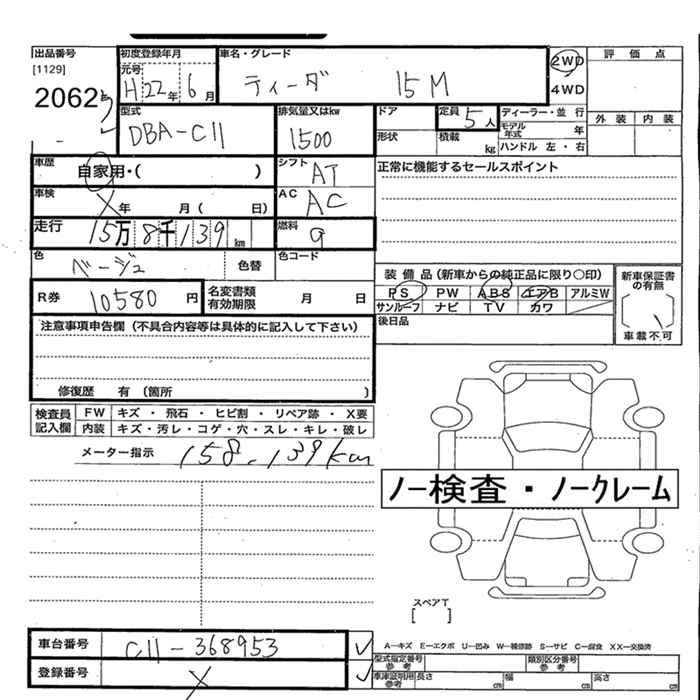 出品番号 初度登録年月 車名・グレード 2WD 評価点
[1129] 元号
20625 H22年 6月 ティーダ 15M 4WD
型式 排気量又はkw ドア 定員 5人 ディーラー・並行 外装 内装
DBA-C11 1500 形状 積載 kg モデル年式 年
ハンドル 左・右
車歴 自家用・( ) シフト AT 正常に機能するセールスポイント
車検 X年 月( 日) AC AC
走行 15万8千139km 燃料 g
色 ベージュ 色替 色コード 装備品(新車からの純正品に限り○印) 新車保証書の有無
R券 10580円 名変書類有効期限 月 日 PS PW ABS エアB アルミW
サンルーフ ナビ TV カワ
注意事項申告欄(不具合内容等は具体的に記入して下さい) 後日品 車載不可
修復歴 有(箇所 )
検査員記入欄 FW キズ・飛石・ヒビ割・リペア跡・X要
内装 キズ・汚レ・コゲ・穴・スレ・キレ・破レ
メーター指示 158,139km
ノー検査・ノークレーム
スペアT
[ ]
車台番号 C11-368953 ✓ A-キズ E-エクボ U-凹み W-補修跡 S-サビ C-腐食 XX-交換済
型式指定番号参考 類別区分番号参考
登録番号 X ✓ 車庫証明用参考 長さ cm 幅 cm 高さ cm